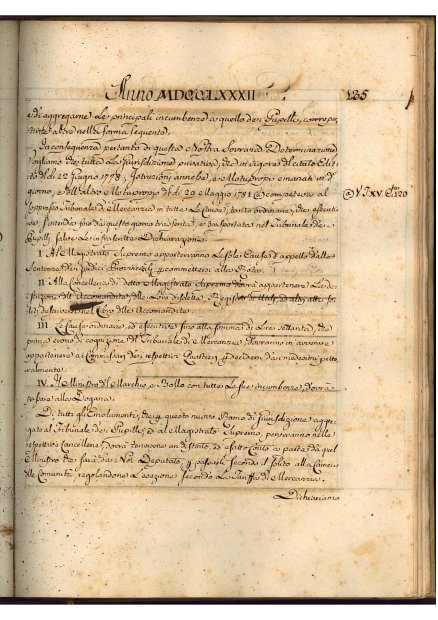 Anno MDCCLXXXII. 135
e di aggregarne le principali incumbenze a quello dei Pupilli, corrispo
nte altro nella forma seguente.
In conseguenza pertanto di questa Nostra Sovrana Determinazione
vogliamo che tutta la giurisdizione privativa, che in vigore del citato Edit
to del dì 22 Giugno 1778, Istruzioni annesse, e Motuproprio emanati in d.
giorno, e dell'altro Motuproprio del dì 29 Maggio 1781 competeva al @ V. T. XV. C. 120
soppresso Tribunale di Mercanzia in tutte le Cause, tanto ordinarie, che esecuti
ve, s'intenda fino da questo giorno trasferita, e trasportata nel Tribunale dei
Pupilli salve le infrascritte Dichiarazioni.
I. Al Magistrato Supremo apparterranno le sole Cause d'appello dalle
Sentenze dei Giudici Provinciali commettersi alla Rota.
II. Alla Cancelleria di detto Magistrato Supremo dovrà appartenere la
delle Accomandite, Registro di
delle Accomandite.
III. Le Cause ordinarie, ed esecutive fino alla somma di Lire settanta, che
prima erano di cognizione del Tribunale di Mercanzia dovranno in avvenire
appartenere ai Commissari dei rispettivi Quartieri decidersi dai medesimi
ralmente.
IV. Il Ministro del Marchio, e Bollo con tutte le sue incumbenze, dovrà
passare alla Dogana.
Di tutti gli Emolumenti, che questo nuovo Ramo di giurisdizione aggre
gato al Tribunale dei Pupilli, e al Magistrato Supremo, perverranno nelle
rispettive Cancellerie, dovrà tenersene un distinto, ed esatto Conto a parte da quel
Ministro che sarà da Noi Deputato, passarli secondo il solito alla Camera
delle Comunità, regolandone l'esazione secondo la Tariffa di Mercanzia.
Dichiariamo